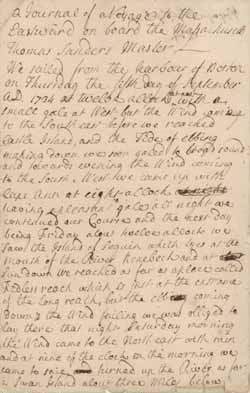 a Journal of a Voyage to the
Eastward on board the Massachusets
Thomas Sanders Master
We sailed from the harbour of Boston
on Thursday the fifth day of September
A.D. 1734 at twelve a clock with a
small gale at West but the Wind coming
to the South east before we reached
Castle Island, and the Tide of ebbing
making down we run to broad sound
and towards evening the Wind coming
to the South West we came up with
Cape Ann at eight a clock
having a pleasant gale all night we
continued our Course and the next day
being Friday about twelve a clock we
saw the Island of Seguin which lyes at the
mouth of the River Kenebeck and at
sundown we reached as far as a place called
reach which is just at the entrance
of the long reach, but the ebb coming
down & the Wind failing we was obliged to
lay there that night Saturday morning
the Wind came to the North east with rain
and at nine of the clock in the morning we
came to sail and turned up the River as far
as Swan Island about three Miles below